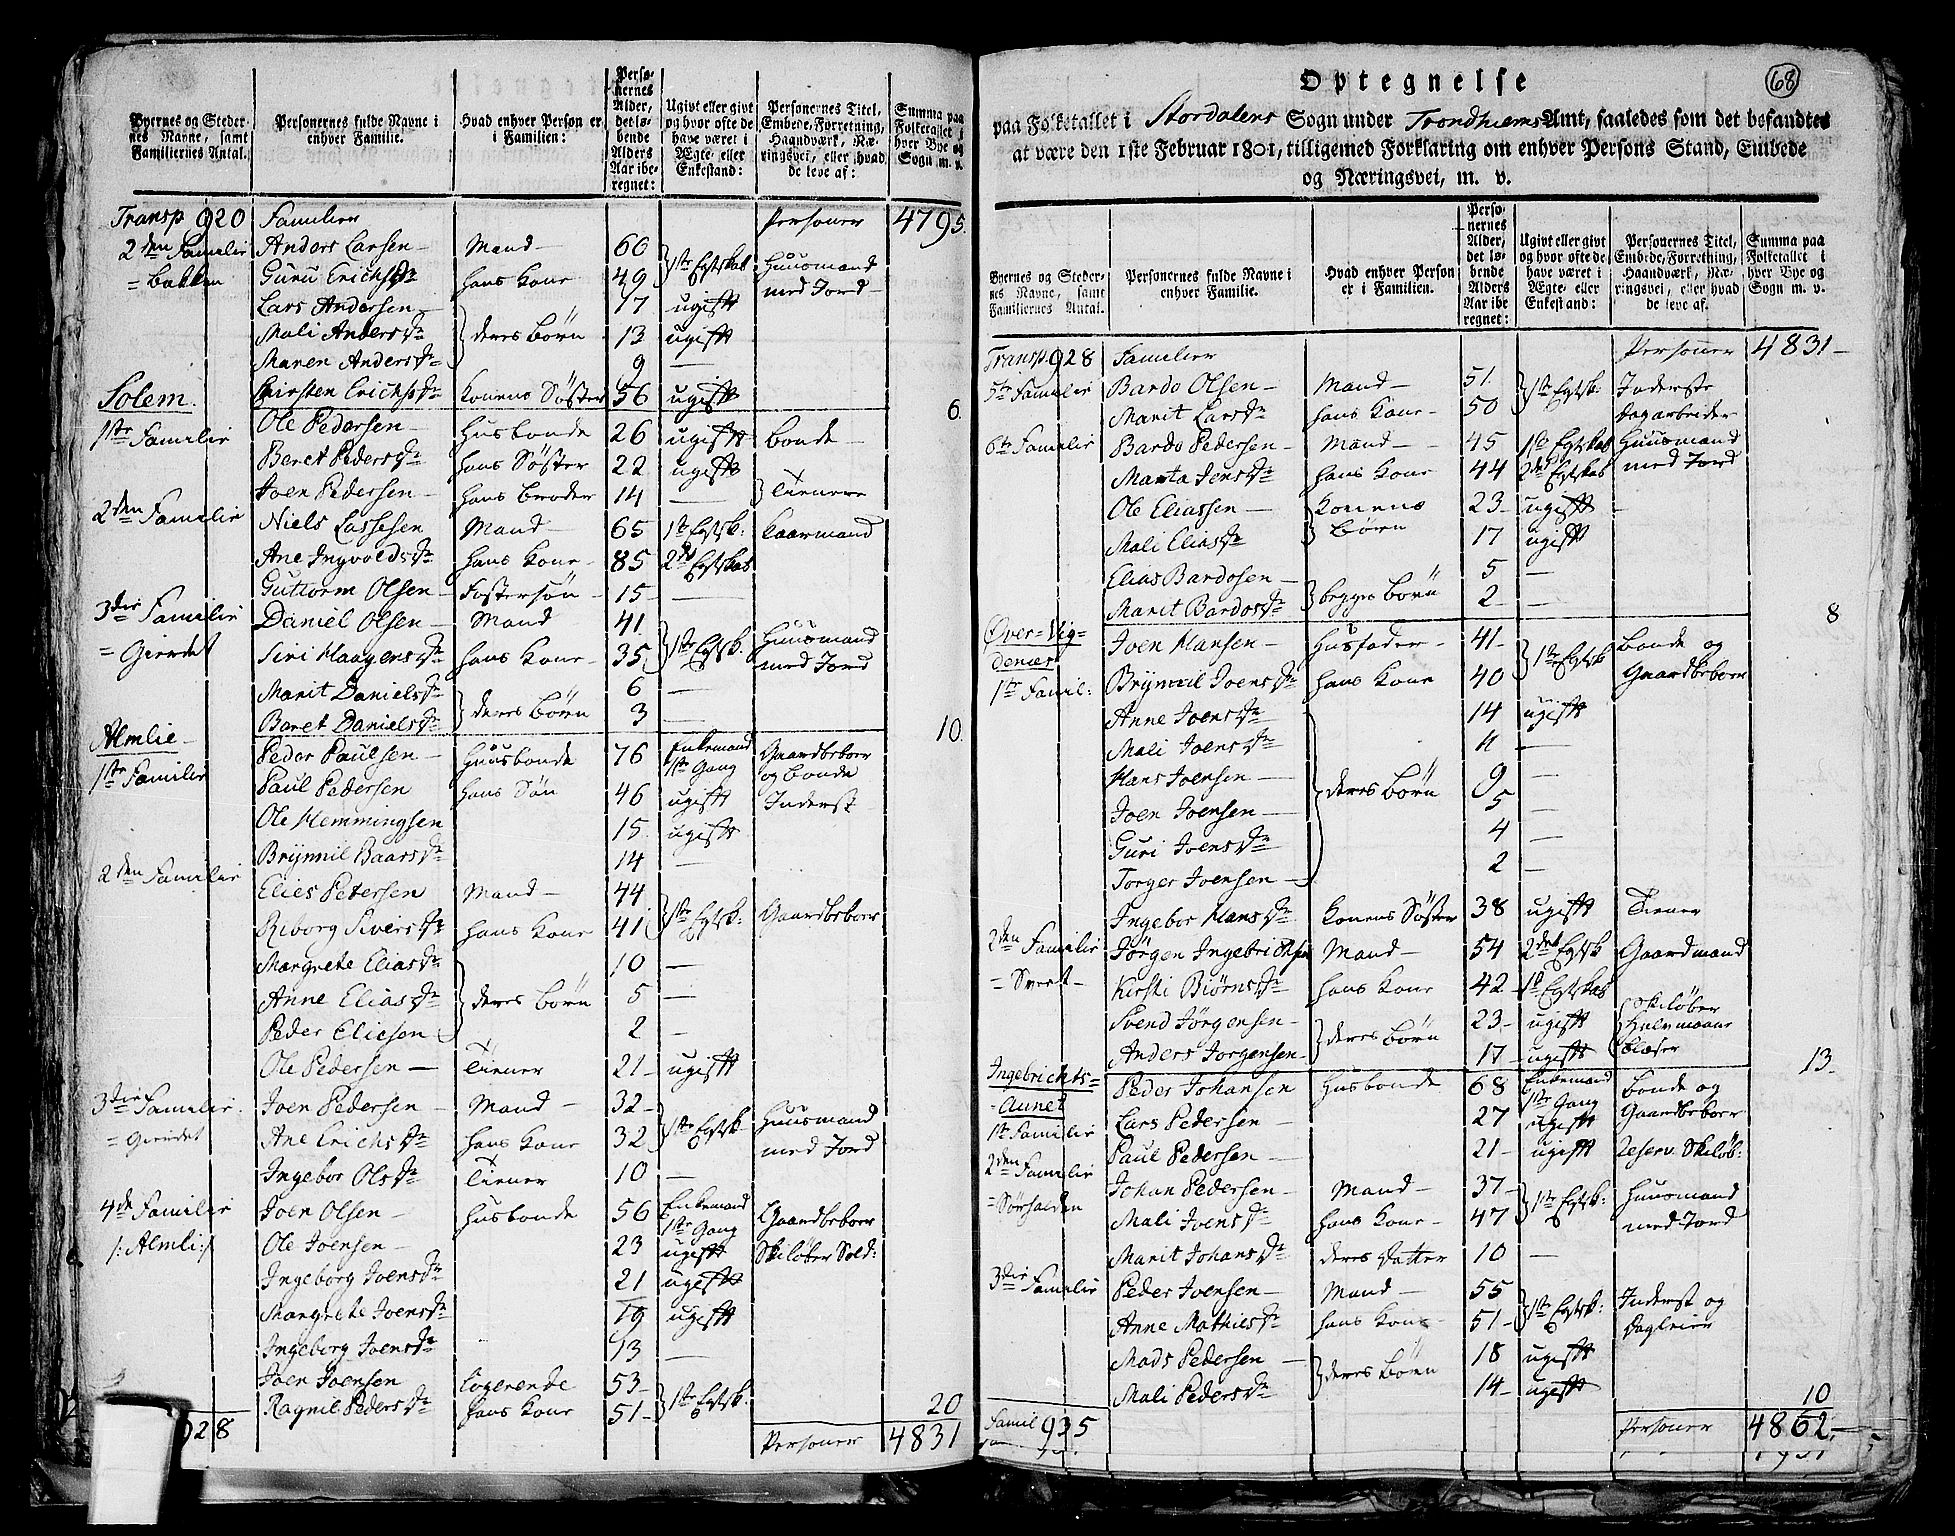 Byernes og Steder-
nes Navne, samt
Familiernes Antal.
Personernes fulde Navne i
enhver Familie.
Hvad enhver Person er
i Familien:
Perso-
nernes
Alder,
det lø-
bende
Alders
Aar ibe-
regnet:
Ugivt eller givt
og hvor ofte de
have været i
Ægte- eller
Enkestand:
Personernes Titel,
Embede, Forretning,
Haandværk, Næ-
ringsvei, eller hvad
de leve af:
Summa paa
Folketallet i
hver Bye og
Sogn m. v.
Transp 920 Familier Personer 4795.
2den Familie Anders Larsen Mand 60 1ste Egtskab Huusmand
= Bakken Guru Erichsdr hans Kone 49 med Jord
Lars Andersen 17 ugift
Mali Andersdr deres Børn 13 ugift
Maren Andersdr 9 —
Solem. Kirsten Erichsdr Konens Søster 56 ugift 6.
1ste Familie Ole Pedersen Husbonde 26 ugift Bonde
Beret Pedersdr hans Søster 22 ugift
Joen Pedersen hans Broder 14 — Tienere
2den Familie Niels Lassesen Mand 65 1te Egtsk: Kaarmand
Ane Ingvoldsdr hans Kone 85 2det Egtskab
Guttorm Olsen Fostersøn 15 —
3die Familie Daniel Olsen Mand 41 1ste Egtsk: Huusmand
= Gierdet Siri Haagensdr hans Kone 35 med Jord
Marit Danielsdr deres Børn 6 —
Beret Danielsdr 3 — 10.
Almlie
1ste Familie Peder Paulsen Huusbonde 76 Enkemand 1ste Gang Gaardbeboer og Bonde
Paul Pedersen hans Søn 46 ugift Inderst
Ole Hemmingsen 15 ugift
Brynnil Baarsdr 14 —
2den Familie Elies Petersen Mand 44 1ste Egtsk: Gaardbeboer
Riborg Siversdr hans Kone 41
Margrete Eliasdr 10 —
Anne Eliasdr deres Børn 5 —
Peder Eliesen 2 —
Ole Pedersen Tiener 21 ugift
3die Familie Joen Pedersen Mand 32 1ste Egtsk Huusmand
= Gierdet Ane Erichsdr hans Kone 32 med Jord
Ingebor Olsdr Tiener 10 —
4de Familie Joen Olsen Husbonde 56 Enkemand 1ste Gang Gaardbeboer
/:Almli:/ Ole Joensen 23 ugift Skiløber Sold:
Ingeborg Joensdr 21 ugift
Margrete Joensdr 19 ugift
Ingeborg Joensdr 13 —
Joen Joensen Logerende 53 1ste Egtsk.
Ragnil Pedersdr hans Kone 51 20
928 Personer 4831
68
Optegnelse
paa Folketallet i Stordalens Sogn under Trondhiems Amt, saaledes som det befandtes
at være den 1ste Februar 1801, tilligemed Forklaring om enhver Persons Stand, Embede
og Næringsvei, m. v.
Byernes og Steder-
nes Navne, samt
Familiernes Antal.
Personernes fulde Navne i
enhver Familie.
Hvad enhver Person
er i Familien.
Perso-
nernes
Alder,
det lø-
bende
Alders
Aar ibe
regnet:
Ugivt eller givt
og hvor ofte de
have været i
Ægte- eller
Enkestand:
Personernes Titel,
Embede, Forretning,
Haandværk, Næ-
ringsvei, eller hvad
de leve af.
Summa paa
Folketallet i
hver Bye og
Sogn m. v.
Transp. 928 Familier Personer 4831
5te Familie Bardo Olsen Mand 51. 1ste Egtsk: Inderste
Marit Larsdr hans Kone 50 Dagarbeider
6te Familie Bardo Pedersen Mand 45 1ste Egtskab Huusmand
Marta Jensdr hans Kone 44 2det Egtskab med Jord
Ole Eliassen Konens 23 ugift
Mali Eliasdr Børn 17 ugift
Elias Bardosen begges Børn 5 —
Marit Bardosdr 2 — 8
Øver=Vig=
denes
1ste Famil: Joen Hansen Husfader 41 1ste Egtsk Bonde og
Brynnil Joensdr hans Kone 40 Gaardbeboer
Anne Joensdr 14 ugift
Mali Joensdr 11 —
Hans Joensen deres Børn 9 —
Joen Joensen 5 —
Guri Joensdr 4 —
Torger Joensen 2 —
Ingebor Hansdr Konens Søster 38 ugift Tiener
2den Familie Jørgen Ingebrichsen Mand 54 2det Egtsk Gaardmand
= Sveet Kirsti Biørnsdr hans Kone 42 1ste Egtskab
Svend Jørgensen deres Børn 23 ugift Skiløber
Anders Jorgensen 17 ugift blæser 13
Ingebrichts=
-Aunet
1ste Familie Peder Johansen Husbonde 68 Enkemand 1ste Gang Bonde og Gaardbeboer
Lars Pedersen 27 ugift
Paul Pedersen 21 ugift Reserv. Skiløb:
2den Familie Johan Pedersen Mand 37 1ste Egtsk: Huusmand
=Sørhalden Mali Joensdr hans Kone 47 med Jord
Marit Johansdr deres Datter 10 —
3die Familie Peder Joensen Mand 55 1ste Egtsk: Inderst og
Anne Mathiesdr hans Kone 51 Dagleier
Mads Pedersen deres Børn 18 ugift
Mali Pedersdr 14 ugift 10
Famil 935 Personer 4862